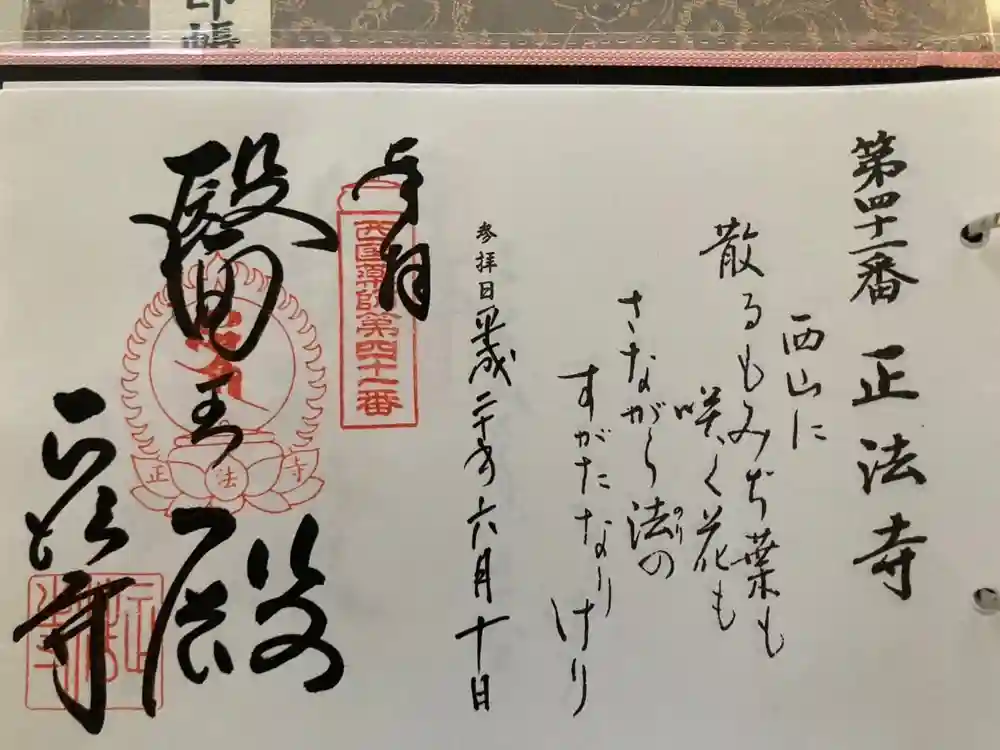 印帳
第四十一番 正法寺
西山に
散るもみぢ葉も
咲く花も
さながら法の
のり
すがたなりけり
参拝日 平成二十年六月十日
奉拝
西国薬師第四十一番
醫王殿
正法寺
正法寺